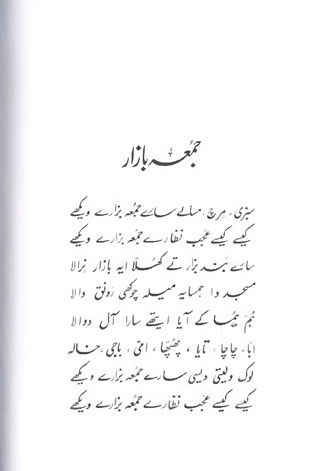 جمعہ بازار
سبزی، مرچ، مسالے سارے جمعہ بزارے ویکھے
کیسے کیسے عجب نظارے جمعہ بزارے ویکھے
سارے بند بزار تے کھلا ایہ بازار نرالا
مسجد دا ہمسایہ میلہ چوکھی رونق والا
ہُم ہُما کے آیا ایتھے سارا آل دوالا
ابا، چاچا، تایا، پھپھا، امی، باجی، خالہ
لوک ولیتی دیسی سارے جمعہ بزارے ویکھے
کیسے کیسے عجب نظارے جمعہ بزارے ویکھے